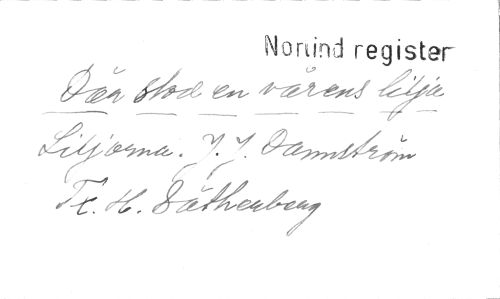 Norlind register
Där stod en vårens lilja
Liljorna. J. J. Dannström
Tx. H. Sätherberg